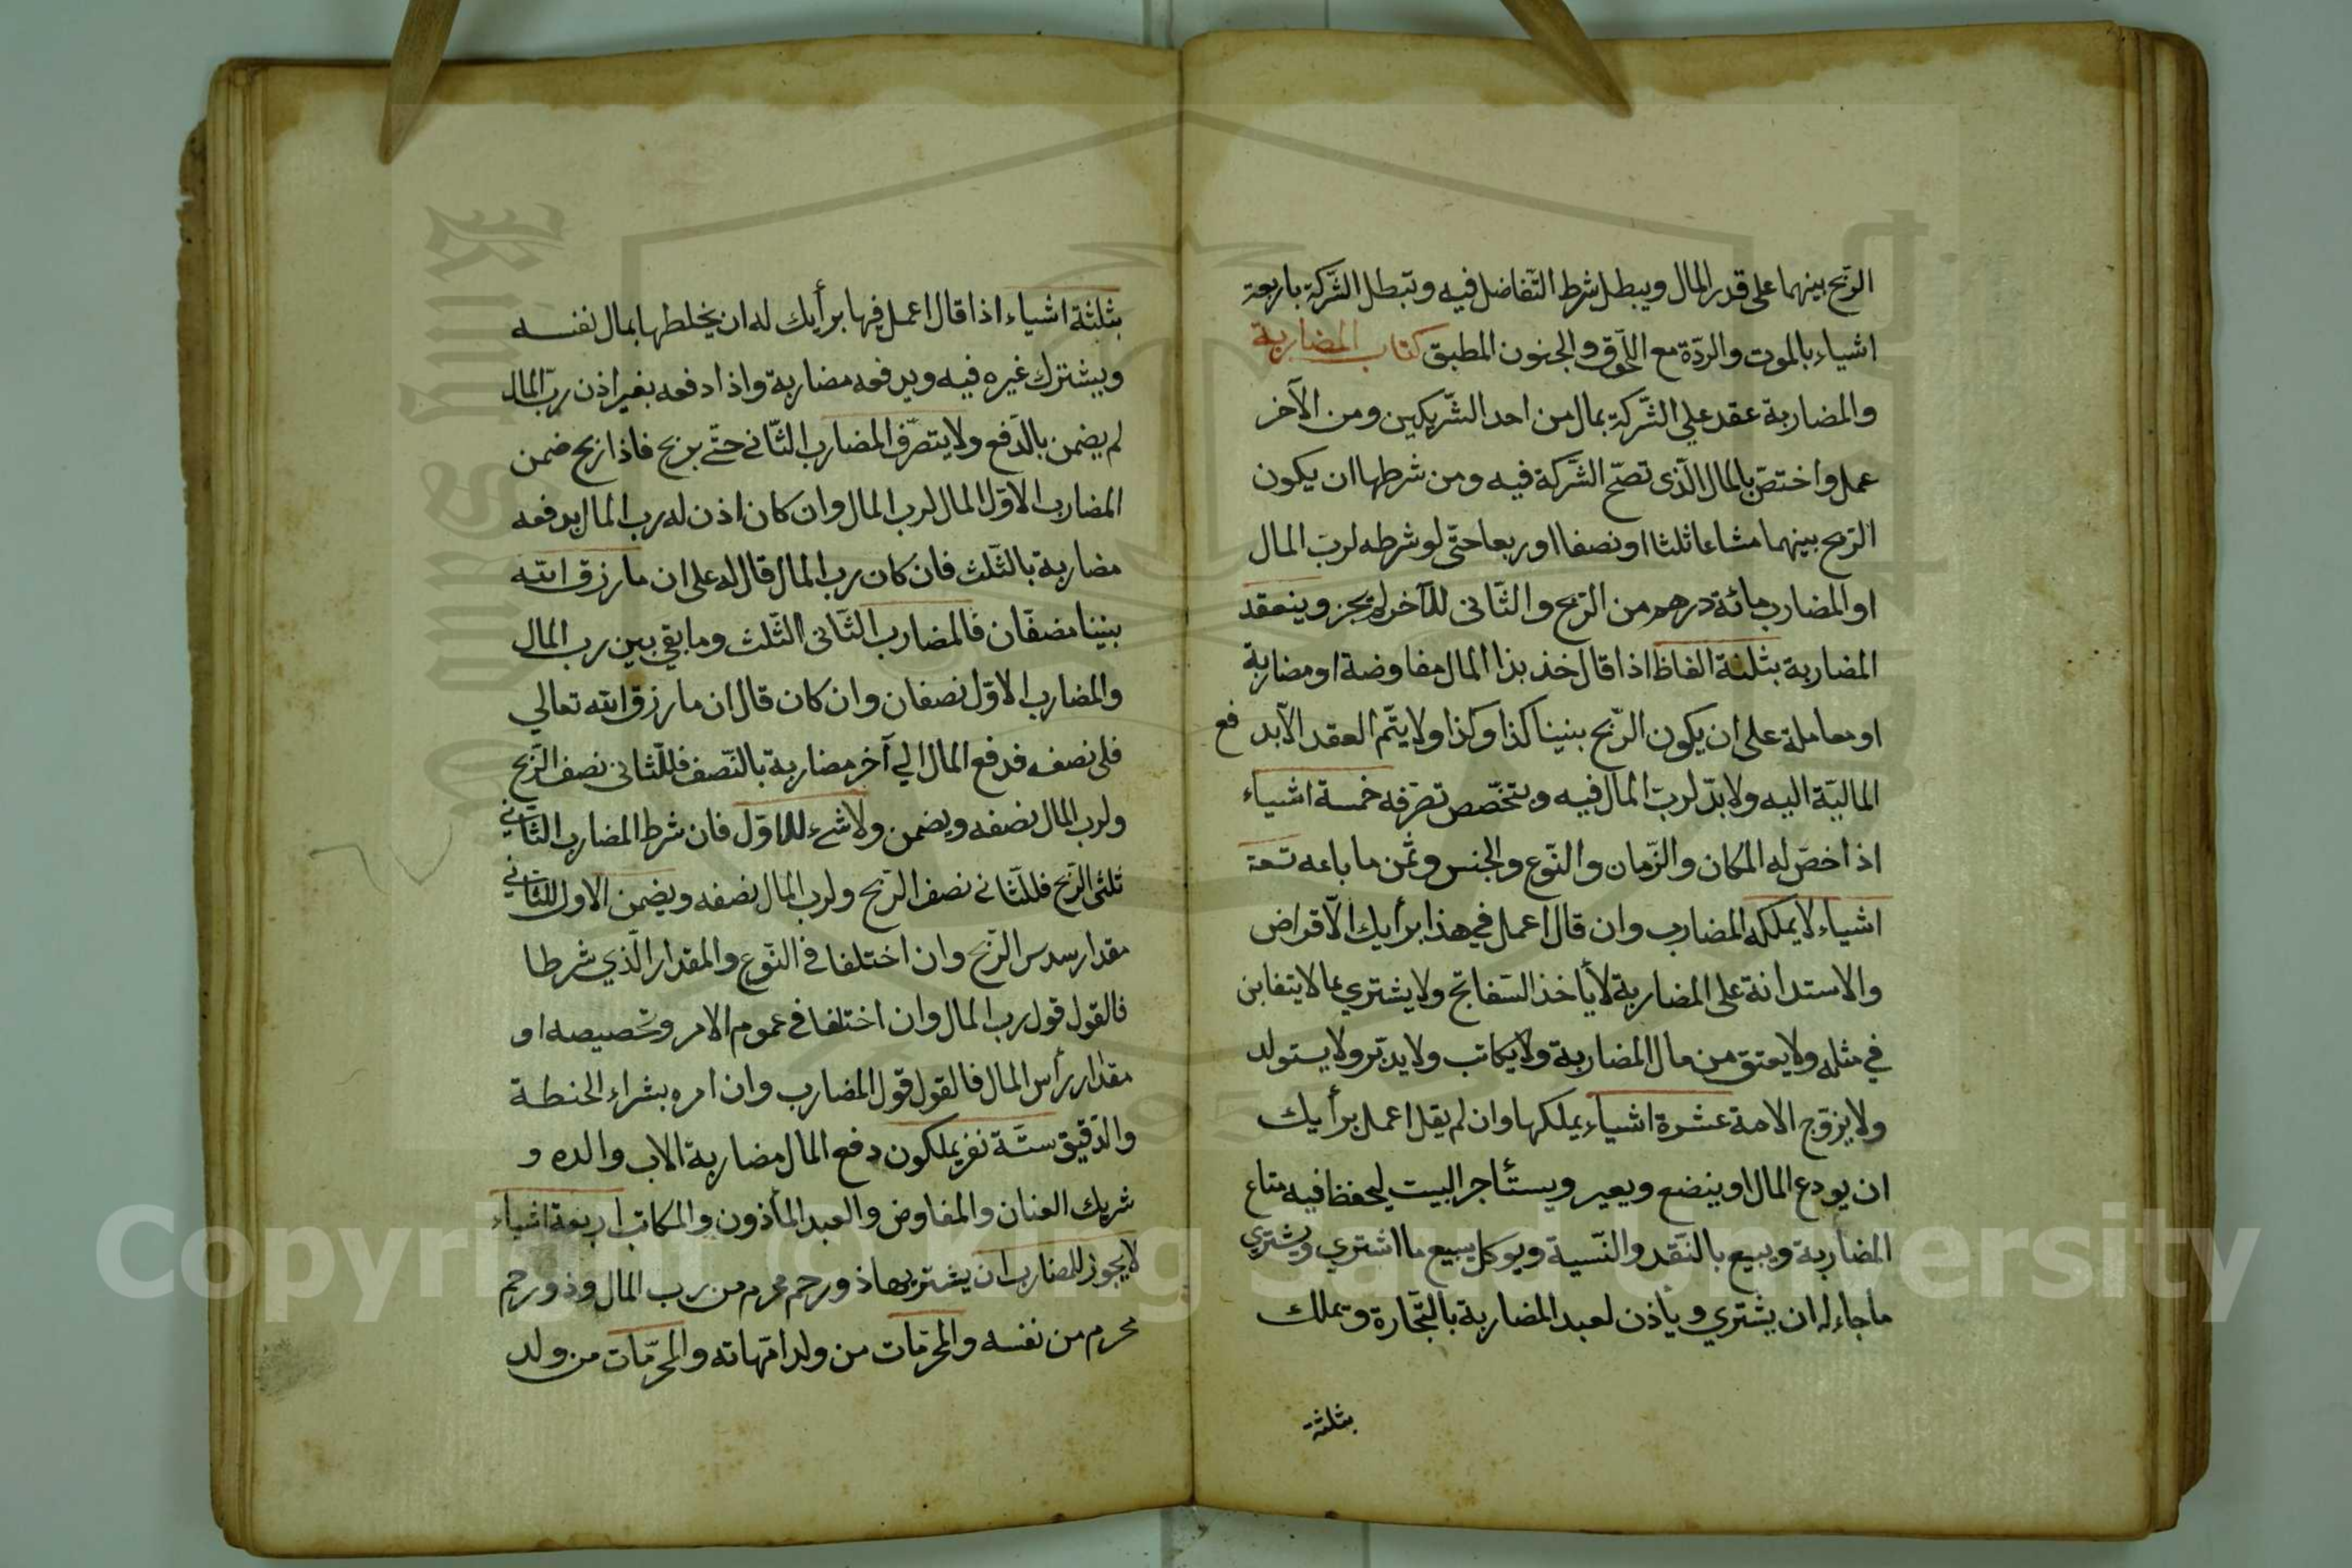 الربح بينهما على قدر المال ويبطل شرط التفاضل فيه وتبطل الشركة باربعة
اشياء بالموت والردّة مع اللحوق والجنون المطبق كتاب المضاربة
والمضاربة عقد علي الشّركة بمال من احد الشّريكين ومن الآخر
عمل واختصّ بالمال الّذى تصحّ الشّركة فيه ومن شرطها ان يكون
الرّبح بينهما مشاعا ثلثا او نصفا او ربعا حتّى لو شرطه لربّ المال
او المضارب مائة درهم من الربح والثّانى للآخر لم يجز وينعقد
المضاربة بثلثة الفاظ اذا قال خذ بذا المال مفاوضة او مضاربة
او معاملة على ان يكون الرّبح بيننا كذا وكذا ولا يتّم العقد الّا بدفع
الماليّة اليه ولا بدّ لربّ المال فيه ويتخصّص تصرّفه خمسة اشياء
اذا خصّ له المكان والزّمان والنّوع والجنس وثمن ما باعه تسعة
اشياء لا يملكه المضارب وان قال اعمل في هذا برأيك الاقراض
والاستدانة على المضاربة لا يأخذ السّفاتج ولا يشتري بما لا يتغابن
في مثله ولا يعتق من مال المضاربة ولا يكاتب ولا يدبّر ولا يستولد
ولا يزوّج الامة عشرة اشياء يملكها وان لم يقل اعمل برأيك
ان يودع المال او يبضع ويعير ويستأجر البيت ليحفظ فيه متاع
المضاربة ويبيع بالنّقد والنّسية ويوكل يبيع ما اشتري ويشتري
ما جاء له ان يشتري ويأذن لعبد المضاربة بالتّجارة وتملك
بثلثة
بثلثة اشياء اذا قال اعمل فيها برأيك له ان يخلطها بمال نفسه
ويشترك غيره فيه ويدفعه مضاربة واذا دفعه بغير اذن ربّ المال
لم يضمن بالدّفع ولا يتصرّف المضارب الثّانى حتّى يربح فاذا ربح ضمن
المضارب الاوّل المال لرب المال وان كان اذن له رب المال بدفعه
مضاربة بالثّلث فان كان رب المال قال له على ان ما رزق الله
بيننا نصفان فالمضارب الثّانى الثّلث وما بقي بين رب المال
والمضارب الاوّل نصفان وان كان قال ان ما رزق الله تعالي
فلى نصفه فدفع المال الي آخر مضاربة بالنّصف فللثّانى نصف الرّبح
ولرب المال نصفه ويضمن ولا شيء للاوّل فان شرط المضارب الثّاني
ثلثى الرّبح فللثّانى نصف الرّبح ولرب المال نصفه ويضمن الاول للثّاني
مقدار سدس الرّبح وان اختلفا فى النّوع والمقدار الّذي شرطا
فالقول قول رب المال وان اختلفا في عموم الامر وتخصيصه او
مقدار رأس المال فالقول قول المضارب وان امره بشراء الحنطة
والدّقيق ستّة نفر يملكون دفع المال مضاربة الاب والده و
شريك العنان والمفاوض والعبد المأذون والمكاتب اربعة اشياء
لا يجوز للمضارب ان يشتر بها ذو رحم محرم من رب المال وذو رحم
محرم من نفسه والمحرّمات من ولد امّهاته والمحرّمات من ولد
Copyright © King Saud University